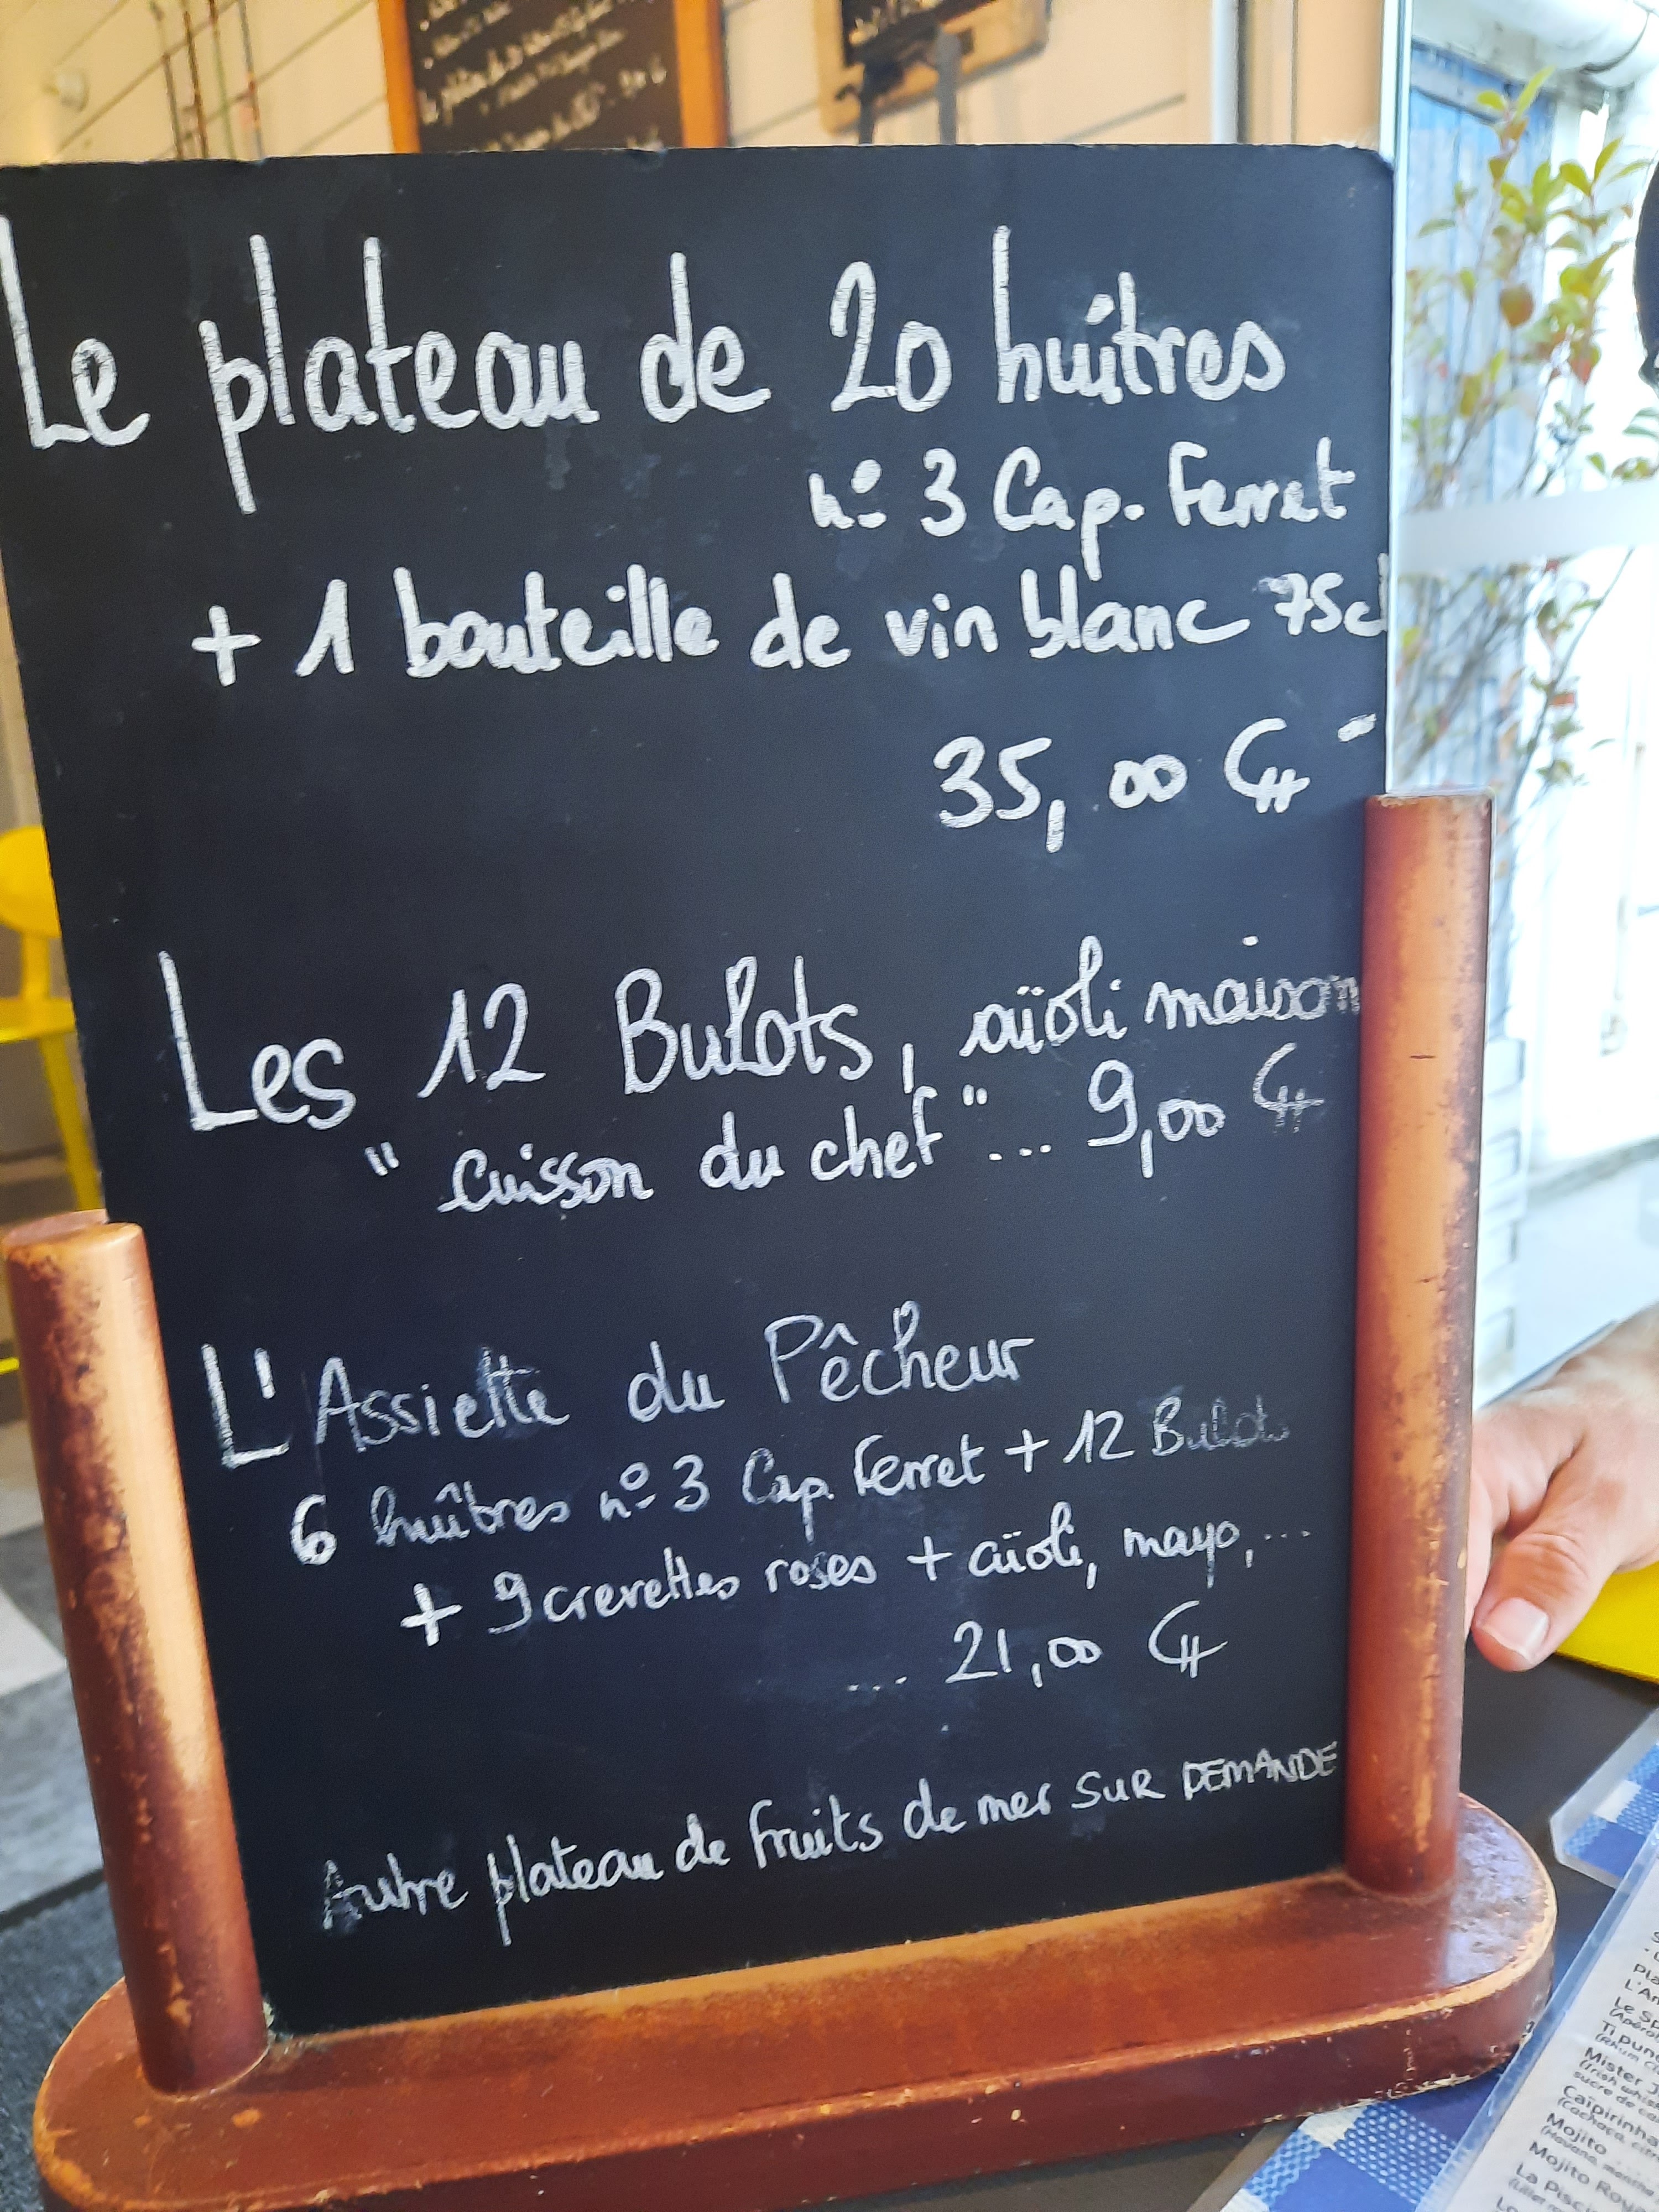 Le plateau de 20 huîtres
n° 3 Cap. Ferret
+ 1 bouteille de vin blanc 75cl
35,00 €
Les 12 Bulots, aïoli maison
" cuisson du chef "... 9,00 €
L'Assiette du Pêcheur
6 huîtres n° 3 Cap. Ferret + 12 Bulots
+ 9 crevettes roses + aïoli, mayo, ...
... 21,00 €
Autre plateau de fruits de mer SUR DEMANDE
Ti punc
Mister J
(Irish whis
sucre de can
Caïpirinha
(Cachaca, citr
Mojito
Mojito Roya
La Pisc